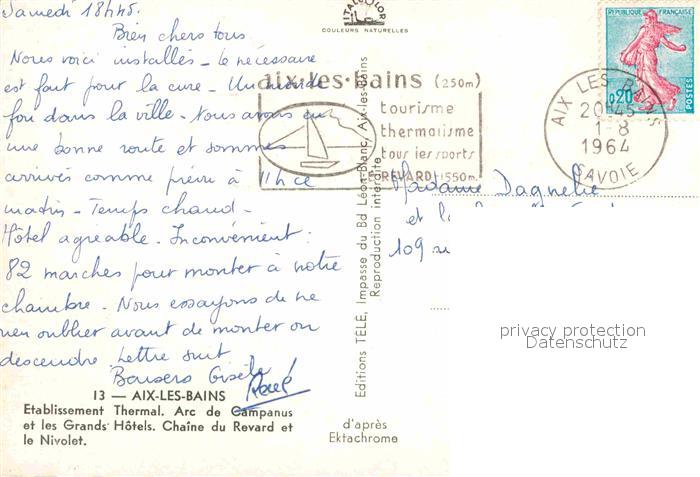 Samedi 18h45.
Bien chers tous.
Nous voici installés - le nécessaire
est fait pour la cure - Un monde
fou dans la ville - Nous avons eu
une bonne route et sommes
arrivés comme prévu à 11h ce
matin - Temps chaud -
Hôtel agréable. Inconvénient :
82 marches pour monter à notre
chambre - Nous essayons de ne
rien oublier avant de monter ou
descendre. Lettre suit
Baisers Gisèle
René
13 — AIX-LES-BAINS
Etablissement Thermal. Arc de Campanus
et les Grands Hôtels. Chaîne du Revard et
le Nivolet.
ITALCOLOR
COULEURS NATURELLES
Editions TELE, Impasse du Bd Léon-Blanc, Aix-les-Bains
Reproduction interdite
d'après
Ektachrome
aix·les·bains (250m)
tourisme
thermalisme
tous les sports
LE REVARD (1550m)
AIX LES BAINS
20H45
1-8
1964
SAVOIE
REPUBLIQUE FRANÇAISE
0,20
POSTES
Madame Dagnelie
et
109
privacy protection
Datenschutz